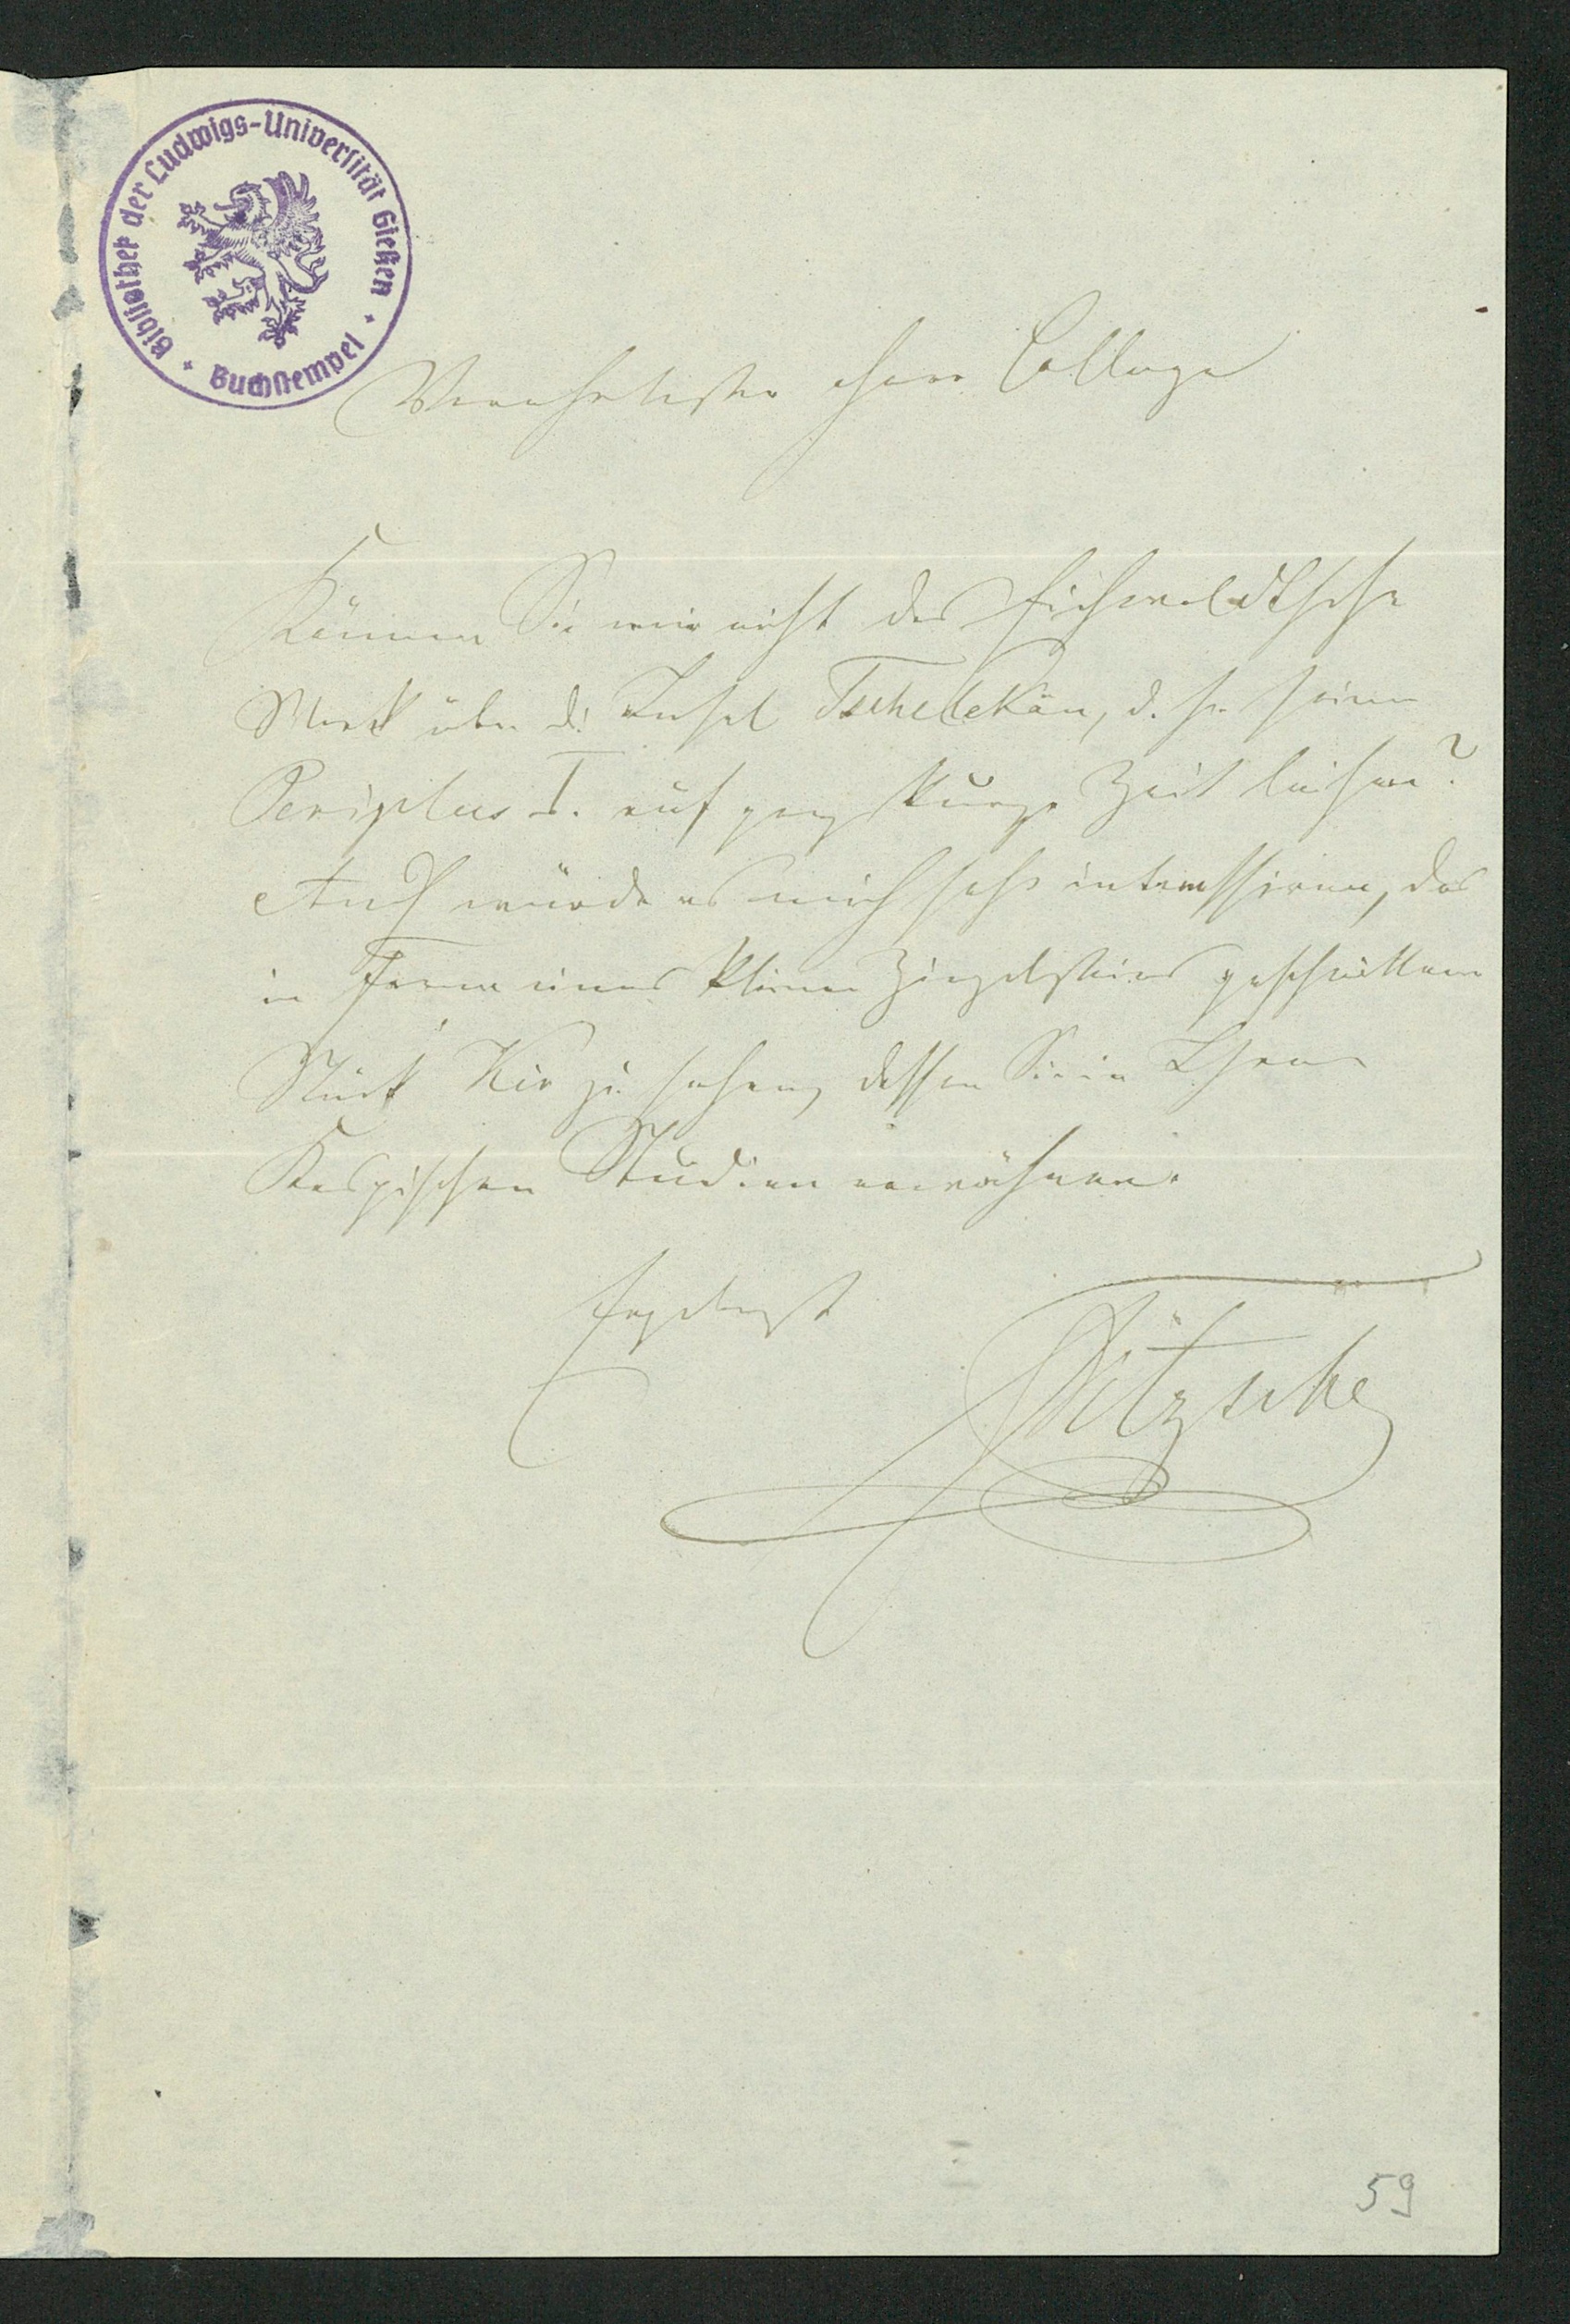 Bibliothek der Ludwigs-Universität Gießen
Buchstempel
Verehrtester Herr College
Können Sie mir nicht das Eichwaldtsche
Werk über di Insel Tschelekän, d. h. seinen
Periplus I. auf ganz kurze Zeit leihen?
Auch würde es mich sehr interessiren, das
in Form eines kleinen Ziegelsteins geschnittene
Stück Kir zu sehen, dessen Sie in Ihren
Kaspischen Studien erwähnen.
Ergebenst
59